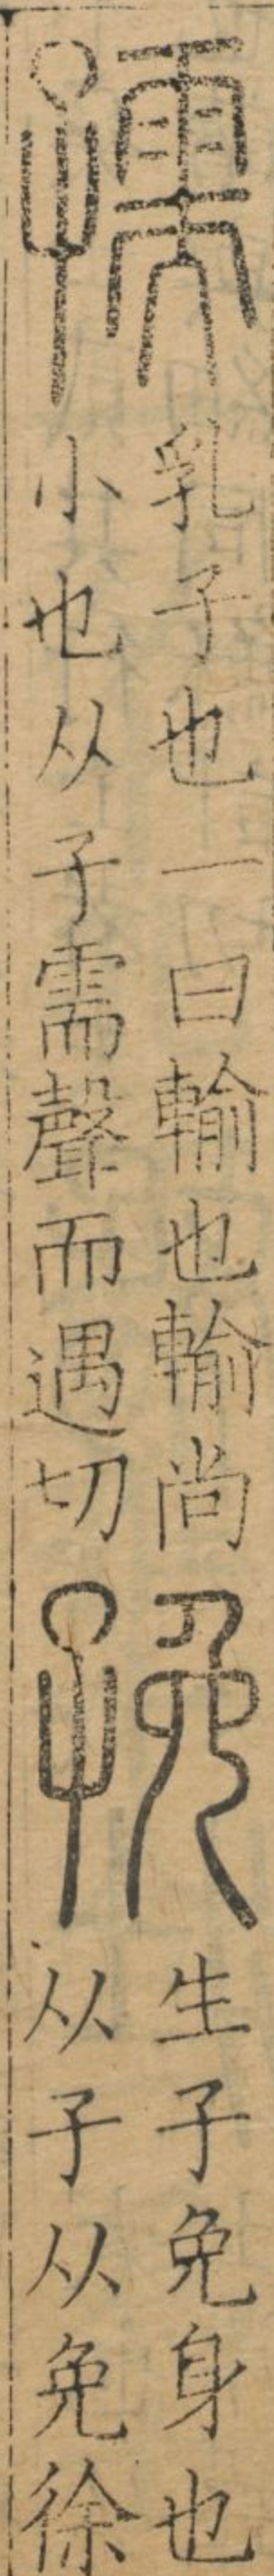 孺
乳子也一曰輸也輸尚
小也从子需聲而遇切
㝃
生子免身也
从子从免徐